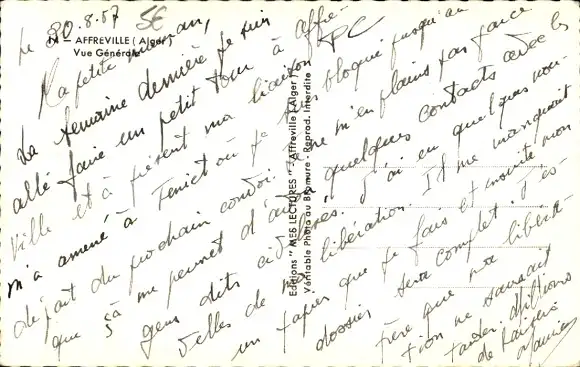 Le 30.8.57
14 — AFFREVILLE (Alger)
Vue Générale
Ma petite maman,
La semaine dernière je suis
allé faire un petit tour à Affre-
ville et à présent ma liaison
m'a amené à Teniet où je suis bloqué jusqu'au
départ du prochain convoi. Je ne m'en plains pas parce
que çà me permet d'avoir quelques contacts avec les
gens dits civilisés. J'ai eu quelques nou-
velles de ma libération. Il me manquait
un papier que je fais et ensuite mon
dossier sera complet. J'es-
père que ma libéra-
tion ne saurait
tarder. Millions
de baisers
Editions "MES LECTURES" — Affreville (Alger)
Véritable Photo au Bromure - Reprod. interdite